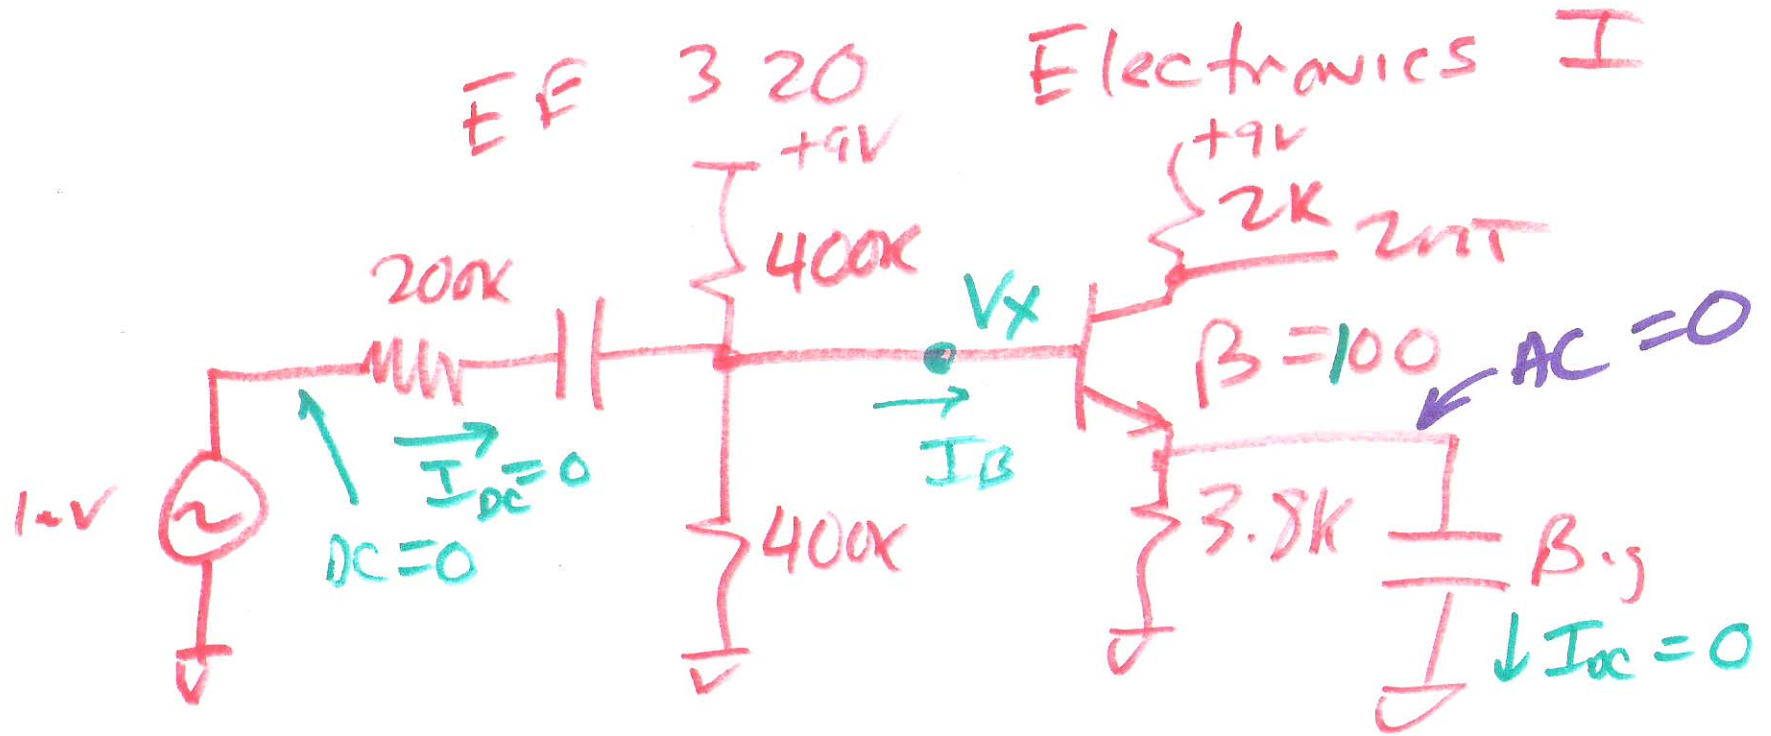 EE 320 Electronics I
+9V
+9V
2K
400K
200K
VX
β=100
AC=0
IB
IDC=0
1mV
DC=0
400K
3.8K
Big
IDC=0